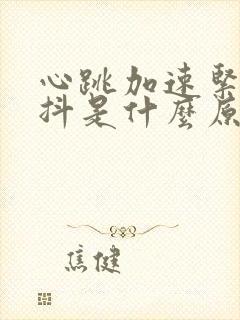 心跳加速紧
抖是什麼原
焦健